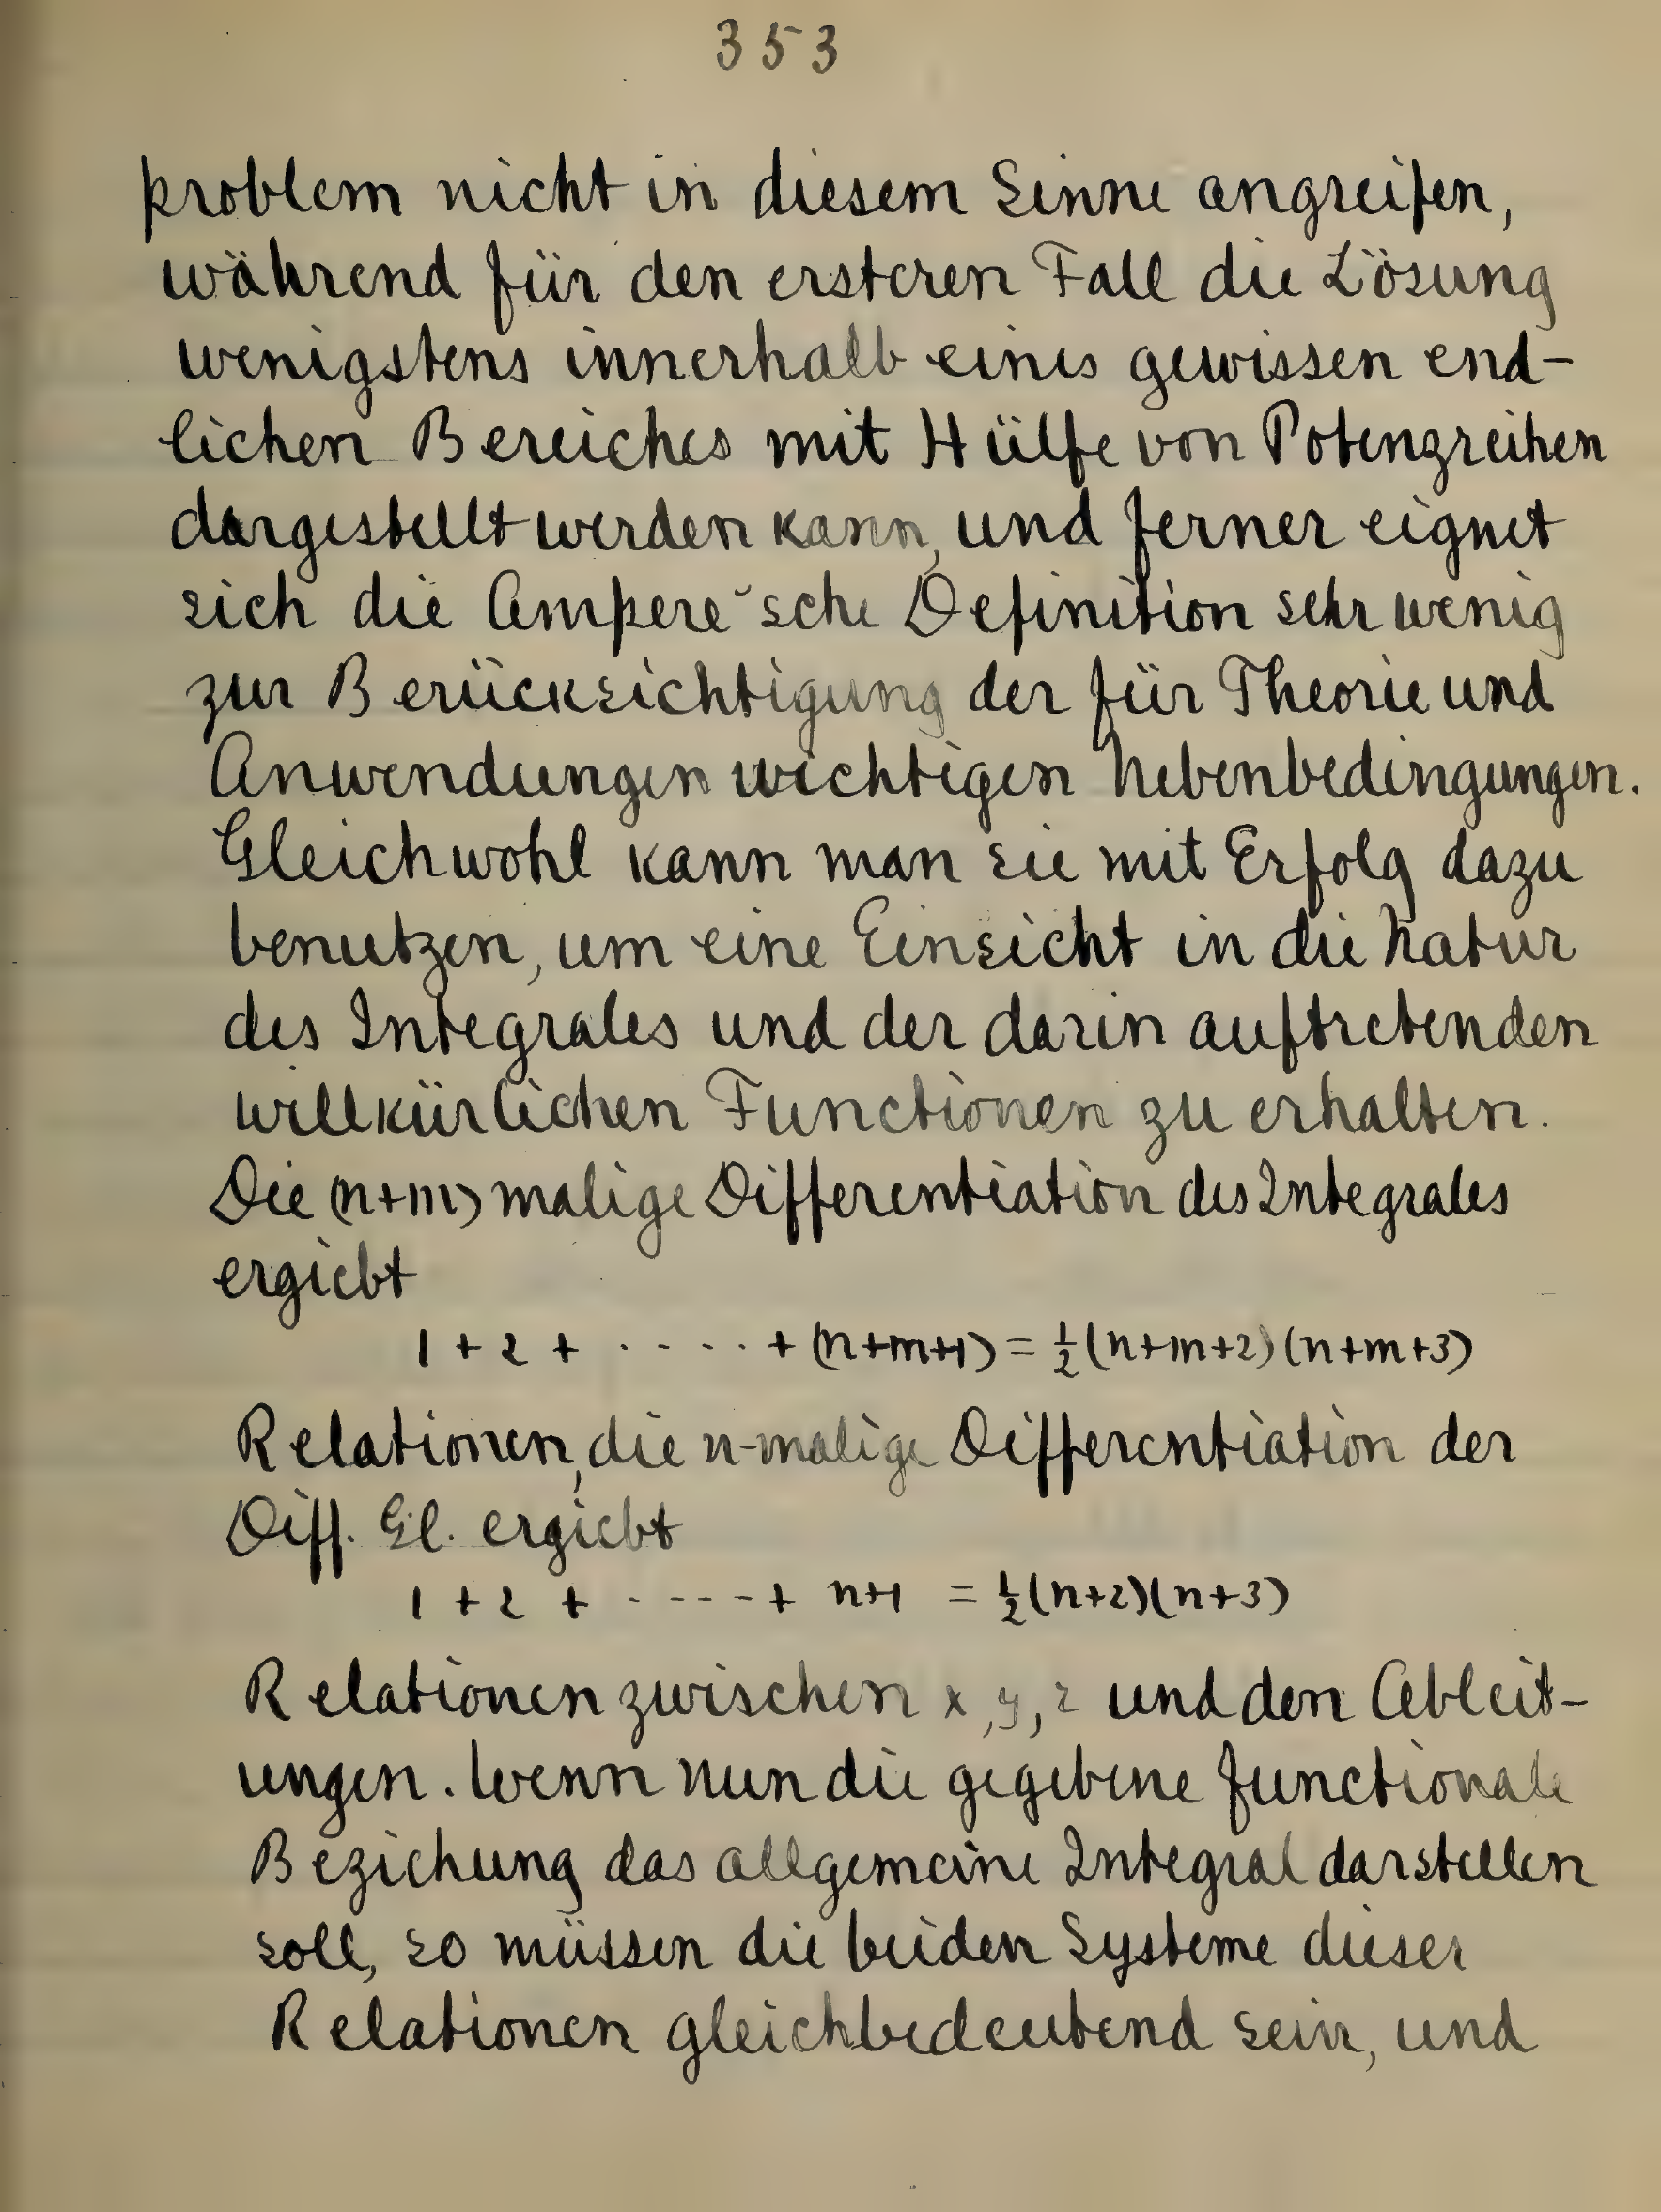 353
problem nicht in diesem Sinne angreifen,
während für den ersteren Fall die Lösung
wenigstens innerhalb eines gewissen end-
lichen Bereiches mit Hülfe von Potenzreihen
dargestellt werden kann, und ferner eignet
sich die Ampere'sche Definition sehr wenig
zur Berücksichtigung der für Theorie und
Anwendungen wichtigen Nebenbedingungen.
Gleichwohl kann man sie mit Erfolg dazu
benutzen, um eine Einsicht in die Natur
des Integrales und der darin auftretenden
willkürlichen Functionen zu erhalten.
Die (n+m) malige Differentiation des Integrales
ergiebt
1 + 2 + ..... + (n+m+1) = ½ (n+m+2) (n+m+3)
Relationen, die n-malige Differentiation der
Diff. Gl. ergiebt
1 + 2 + ..... + n+1 = ½ (n+2)(n+3)
Relationen zwischen x, y, z und den Ableit-
ungen. Wenn nun die gegebene functionale
Beziehung das allgemeine Integral darstellen
soll, so müssen die beiden Systeme dieser
Relationen gleichbedeutend sein, und